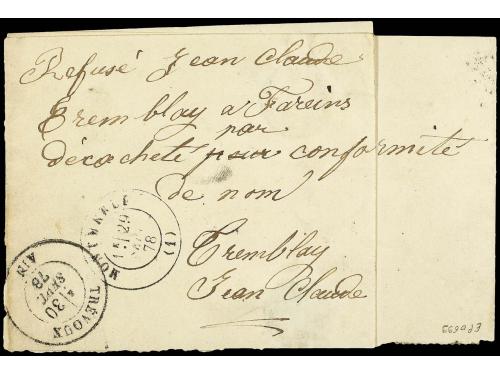 Refusé Jean Claude
Tremblay a Fareins
par
décacheté pour conformité
de nom
Tremblay
Jean Claude
(1)
29
SEPT
78
TREVOUX
30
SEPT
78
AIN